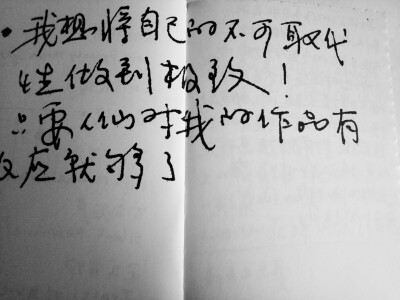 ·我想将自己的不可取代
性做到极致!
只要他们对我的作品有
反应就够了